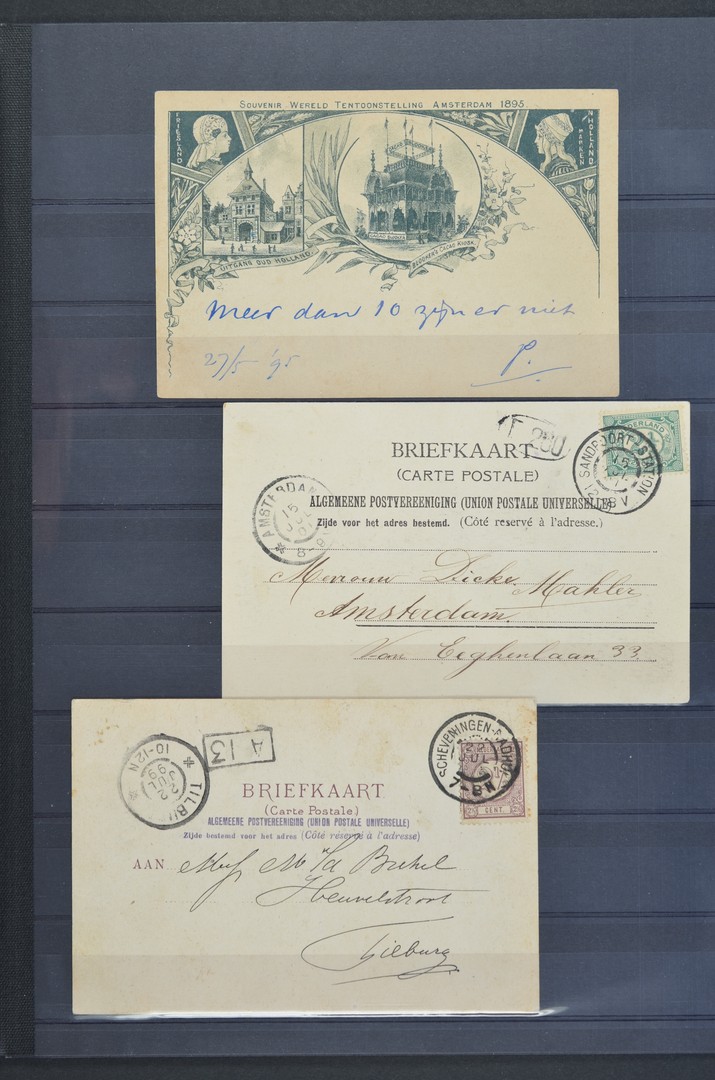 SOUVENIR WERELD TENTOONSTELLING AMSTERDAM 1895.
FRIESLAND
N HOLLAND
MARKEN
UITGANG OUD HOLLAND.
CACAO KIOSK.
Meer dan 10 zijn er niet
27/5 '95 P.
BRIEFKAART
(CARTE POSTALE)
ALGEMEENE POSTVEREENIGING (UNION POSTALE UNIVERSELLE)
Zijde voor het adres bestemd. (Côté reservé à l'adresse.)
SANDPOORT-STATION
AMSTERDAM
15
Mevrouw Dicke Mahler
Amsterdam.
Van Eeghenlaan 33.
TILBU
10-12N
2 JUL 99
A 13
SCHEVENINGEN
22 JUL
7-8N
CENT
BRIEFKAART
(Carte Postale)
ALGEMEENE POSTVEREENIGING (UNION POSTALE UNIVERSELLE)
Zijde bestemd voor het adres (Côté réservé à l'adresse)
AAN Mej. M v/d
Heuvelstraat
Tilburg